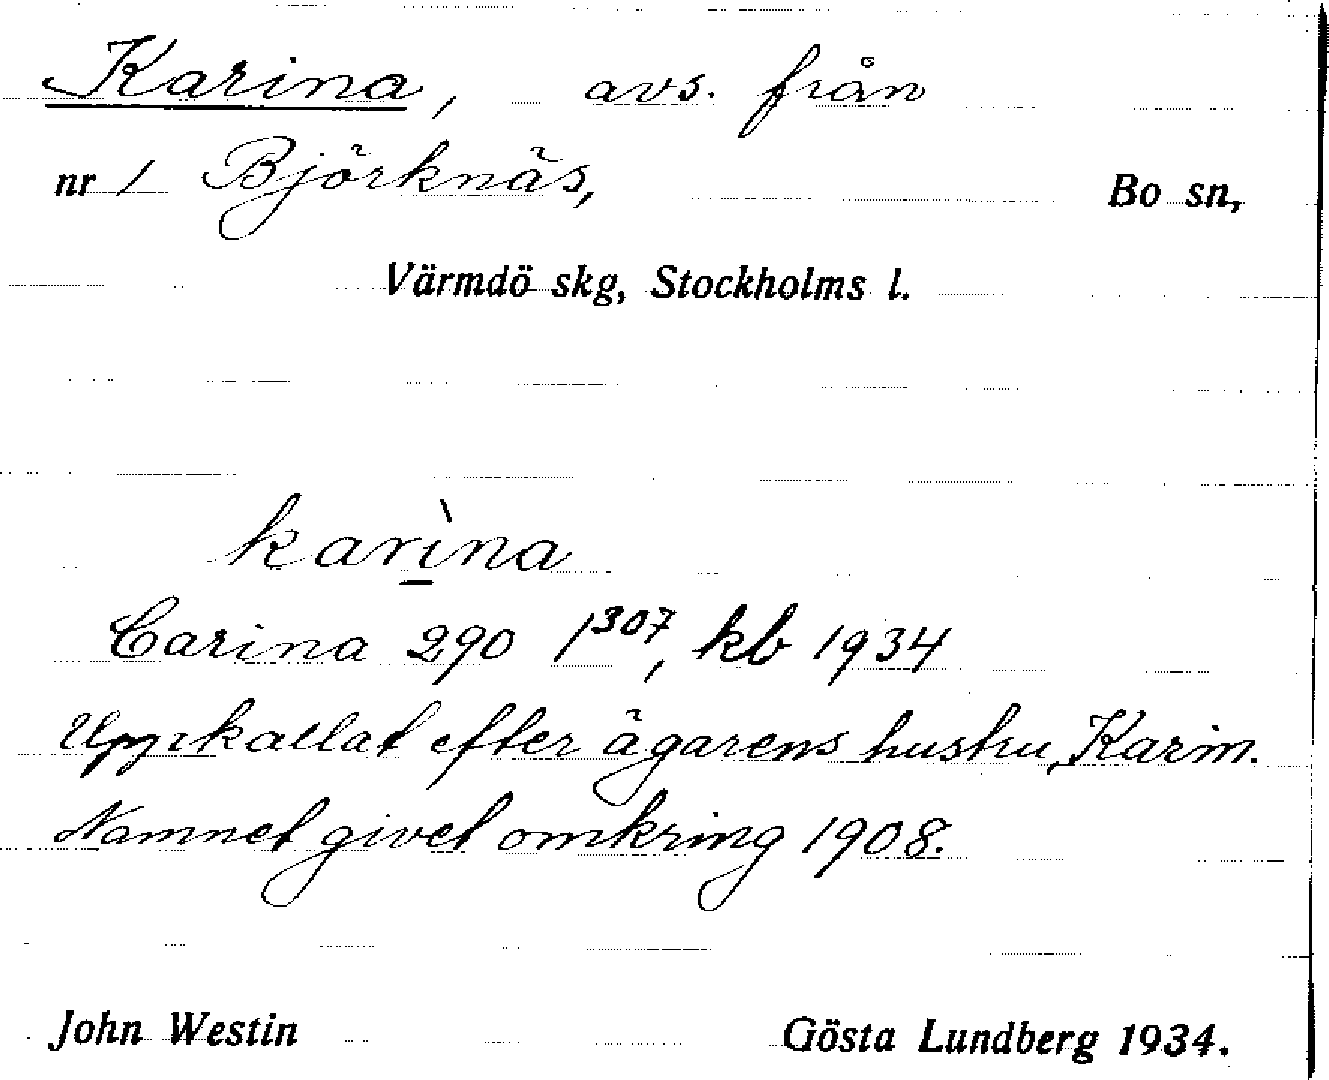 Karina, avs. från
nr 1 Björknäs, Bo sn,
Värmdö skg, Stockholms l.
karìna
Carina 290 1³⁰⁷, kb 1934
Uppkallat efter ägarens hustru, Karin.
Namnet givet omkring 1908.
John Westin Gösta Lundberg 1934.